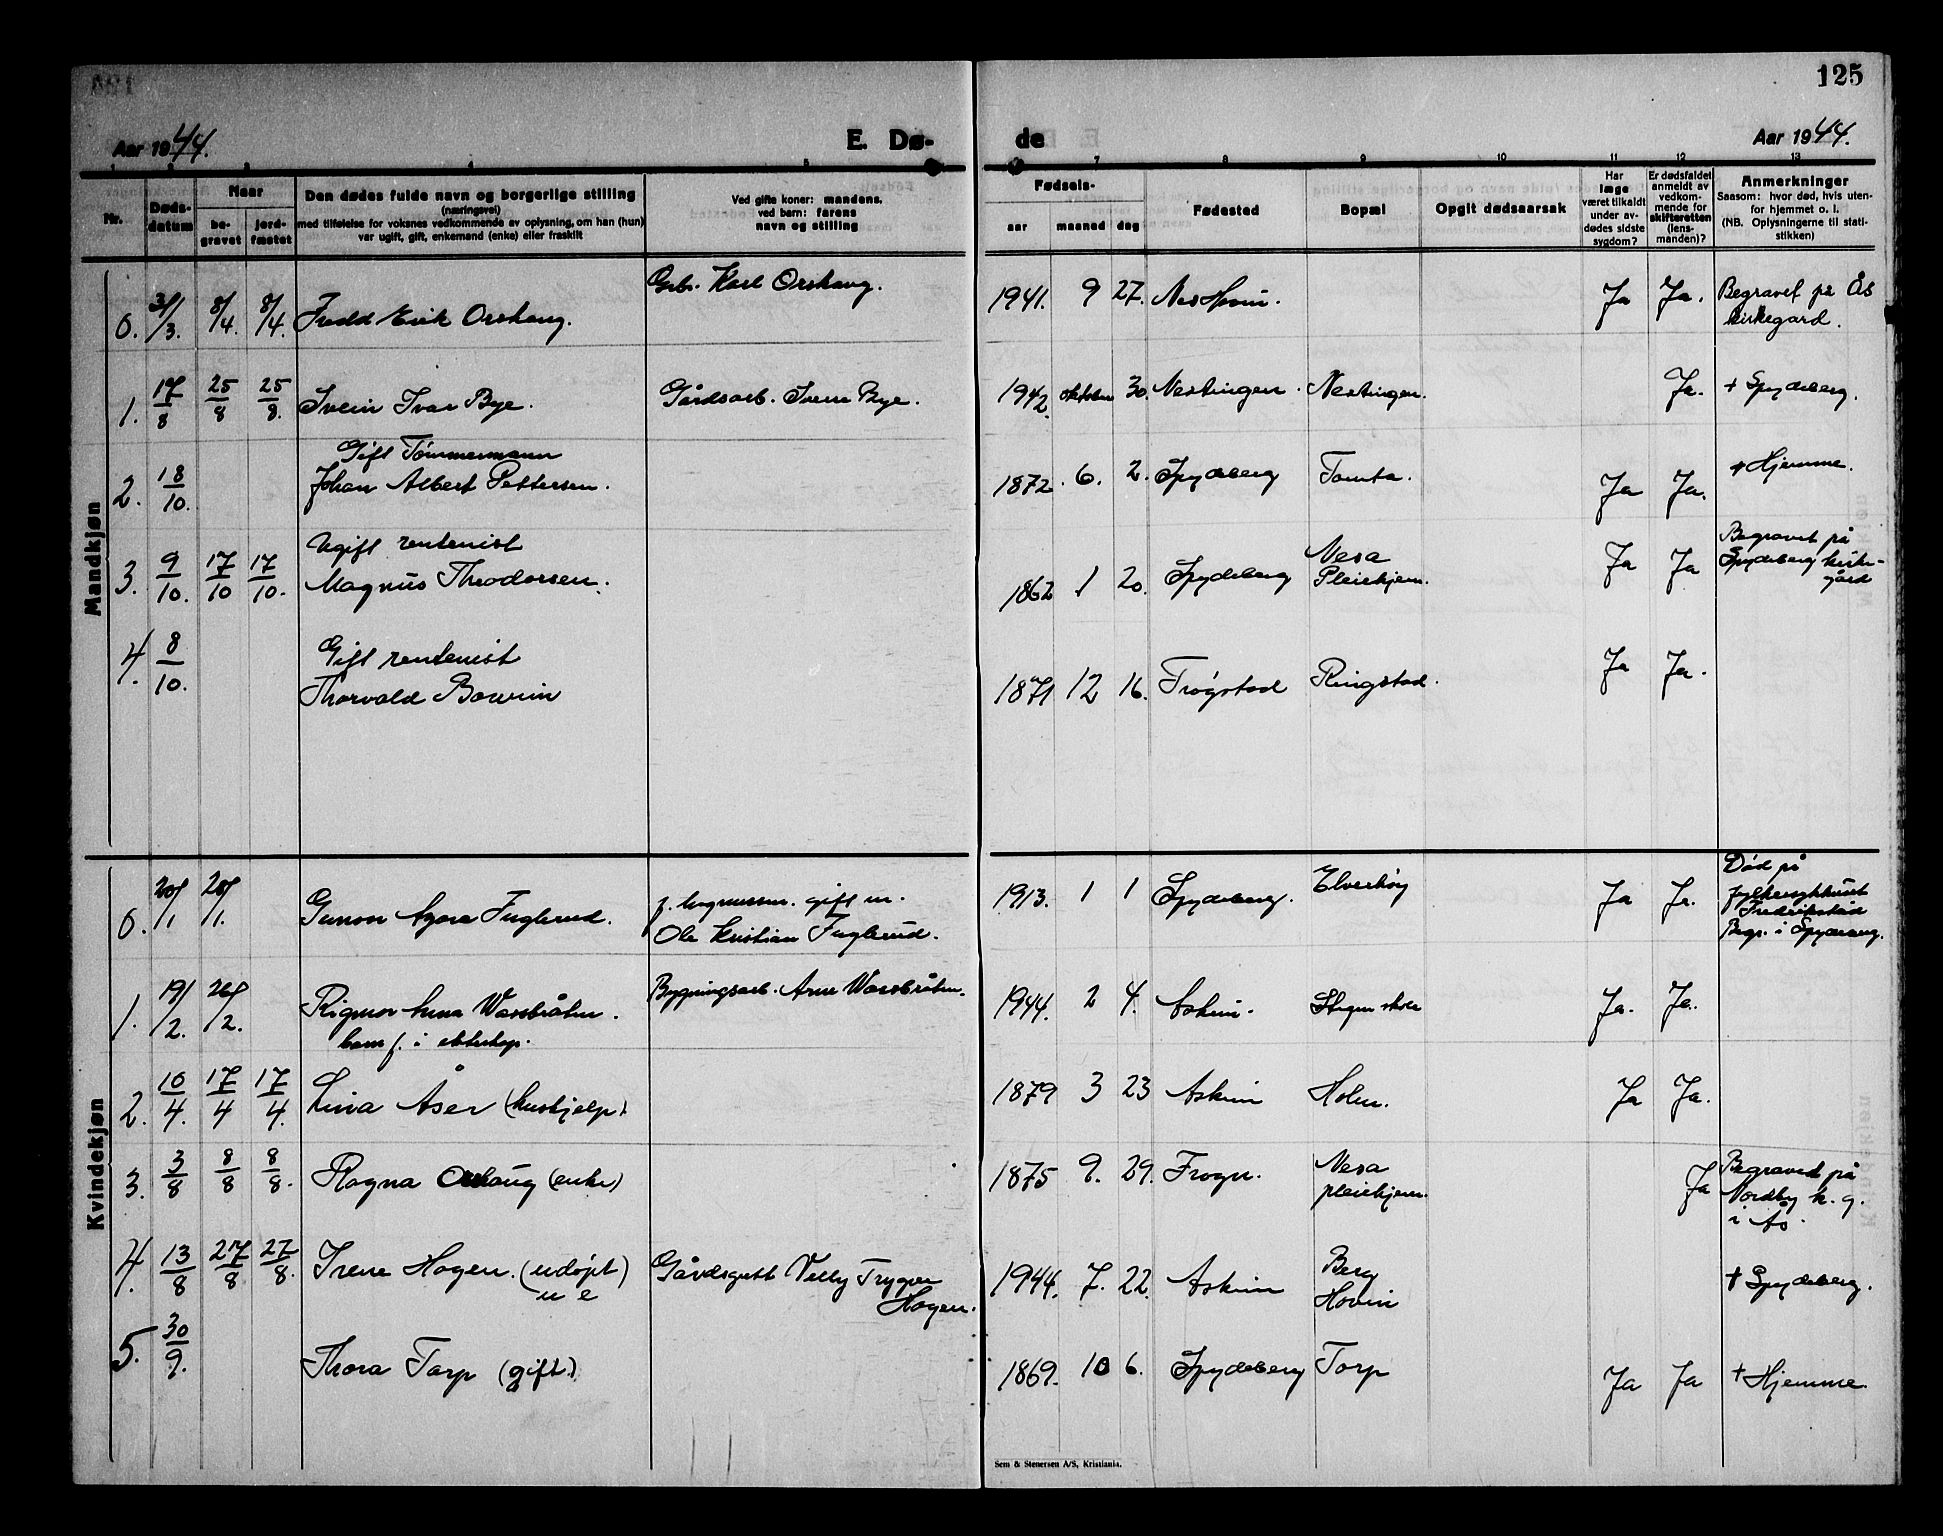 125
Aar 1944. E. Dø- de Aar 1944.
1 2 3 4 5 7 8 9 10 11 12 13
Nr.
Døds-
datum
Naar
be-
gravet
jord-
fæstet
Den dødes fulde navn og borgerlige stilling
(næringsvei)
med tilføielse for voksnes vedkommende av oplysning, om han (hun)
var ugift, gift, enkemand (enke) eller fraskilt
Ved gifte koner: mandens,
ved barn: farens
navn og stilling
Fødsels-
aar maaned dag
Fødested
Bopæl
Opgit dødsaarsak
Har
læge
været tilkaldt
under av-
dødes sidste
sygdom?
Er dødsfaldet
anmeldt av
vedkom-
mende for
skifteretten
(lens-
manden)?
Anmerkninger
Saasom: hvor død, hvis uten-
for hjemmet o. l.
(NB. Oplysningerne til stati-
stikken)
Mandkjøn
0. 31/3. 8/4. 8/4. Fredd Erik Orshaug. Grb. Karl Orshaug. 1941. 9 27. Nes Hovin. Ja Ja. Begravet på Ås
kirkegard.
1. 17/8 25/8 25/8. Svein Ivar Bye. Gårdsarb. Svein Bye. 1942. oktober 30. Nestingen. Nestingen. Ja. + Spydeberg.
Gift Tømmermann
2. 18/10. Johan Albert Pettersen. 1872. 6. 2. Spydeberg Tomta. Ja Ja. + Hjemme.
Ugift rentenist
3. 9/10. 17/10 17/10. Magnus Theodorsen. 1862 1 20. Spydeberg Vesa
Pleiehjem. Ja Ja Begravet på
Spydeberg kirke-
gård
Gift rentenist
4. 8/10. Thorvald Bowim 1871 12 16. Trøgstad Ringstad. Ja Ja.
Kvindekjøn
0. 20/1 28/1. Gunvor Agora Fuglerud. f. Magnussen. gift m.
Ole Kristian Fuglerud. 1913. 1 1 Spydeberg. Elverhøy Ja Ja. Død på
fylkesykehuset
Fredrikstad
Begr. i Spydeberg.
1. 19/2. 26/2. Rigmor Anna Wassbråten.
barn f. i ekteskap. Bygningsarb. Arne Wassbråten. 1944. 2 4. Askim. Stegen skole Ja. Ja.
2. 10/4. 17/4 17/4. Lina Åser (hushjelp). 1879 3 23 Askim Holm. Ja Ja.
3. 3/8 8/8 8/8. Ragna Orshaug (enke) 1875 9. 29. Frogn. Vesa
pleiehjem. Ja Begraved på
Nordby k. g.
i Ås.
4. 13/8 27/8 27/8. Irene Hagen. (udøpt)
u e Gårdsgutt Velly Trygve
Hagen. 1944. 7. 22. Askim Berg
Hovin + Spydeberg.
5. 30/9. Thora Tarp (gift.) 1869. 10 6. Spydeberg Torp Ja Ja + Hjemme.
Sem & Stenersen A/S, Kristiania.